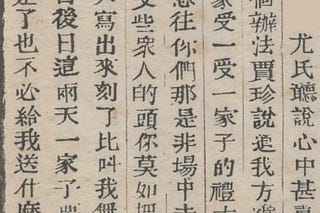 尤氏聽說心中甚喜
個辦法賈珍說道我方纔
家受一受一家子的禮
意往你們那是非場中去
些眾人的頭你莫如把
人寫出來刻了比叫我無
日後日這兩天一家子
送了也不必給我送什麼